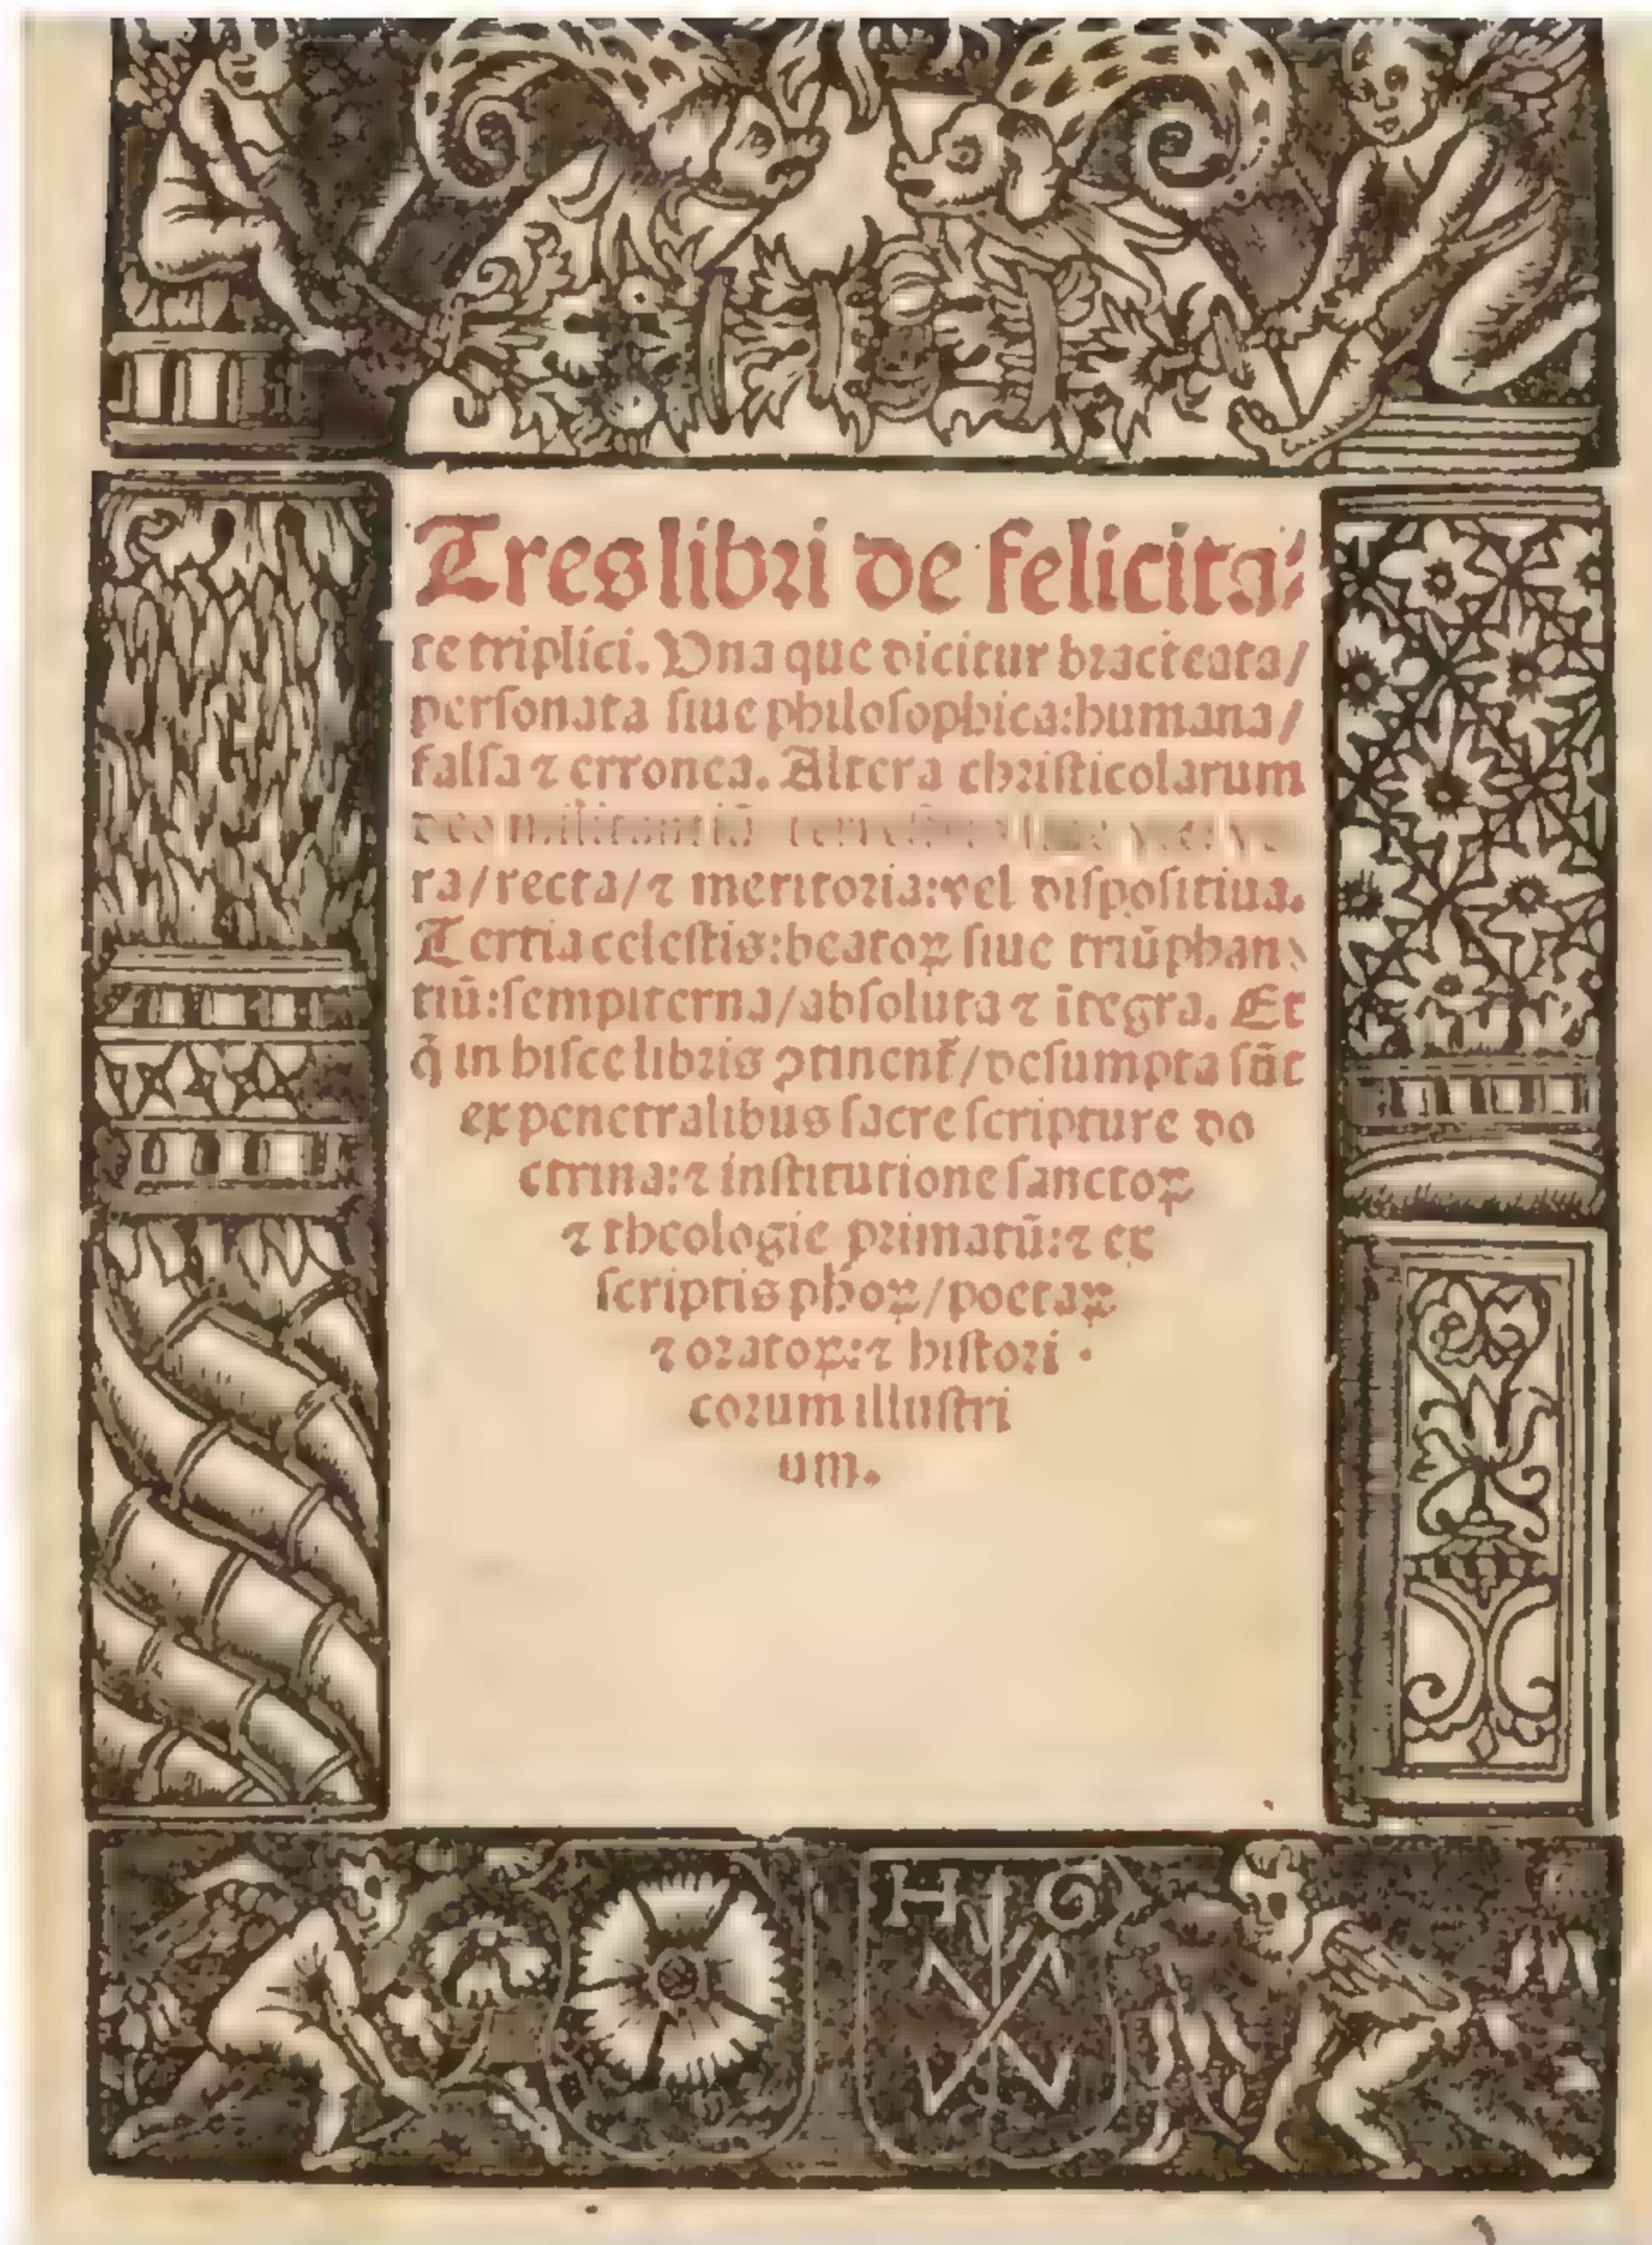 Tres libri de felicita⸗
te triplici. Vna que dicitur bracteata/
personata siue philosophica:humana/
falsa ⁊ erronea. Altera christicolarum
deo militantiũ
ra/recta/⁊ meritoria:vel dispositiua.
Tertia celestis:beatoꝝ siue triũphan⸗
tiũ:sempiterna/absoluta ⁊ ĩtegra. Et
q̃ in hisce libris ꝯtinent̃/desumpta sũt
ex penetralibus sacre scripture do
ctrina:⁊ institutione sanctoꝝ
⁊ theologie primatũ:⁊ ex
scriptis phõꝝ/poetaꝝ
⁊ oratoꝝ:⁊ histori
corum illustri
um.
H G